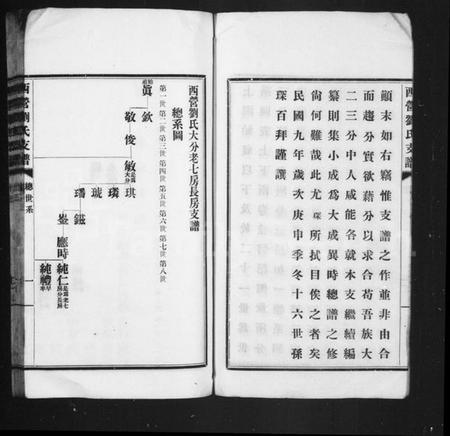 顛末如右竊惟支譜之作並非由合
而趨分實欲藉分以求合苟吾族大
二三分中人咸能各就本支繼續編
纂則集小成爲大成異時總譜之修
尙何難哉此尤琛所拭目俟之者矣
民國九年歲次庚申季冬十六世孫
琛百拜謹譔
西營劉氏支譜
西營劉氏大分老七房長房支譜
總系圖
第一世 第二世 第三世 第四世 第五世 第六世 第七世 第八世
始祖 眞 欽 敬 俊 敏 是爲大分 琪
璘
琥
瑞 鎡
崟 應時 純仁 是爲老七房分長房
純禮 早卒
西營劉氏支譜 總世系